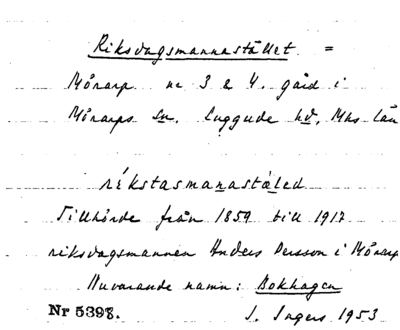 Riksdagsmannastället =
Mörarp nr 3 & 4. gård i
Mörarps sn. Luggude hd, Mhs län
rékstasmanastäled
Tillhörde från 1859 till 1917
riksdagsmannen Anders Persson i Mörarp
Nuvarande namn: Bokhagen
Nr 5398. I. Ingers 1953